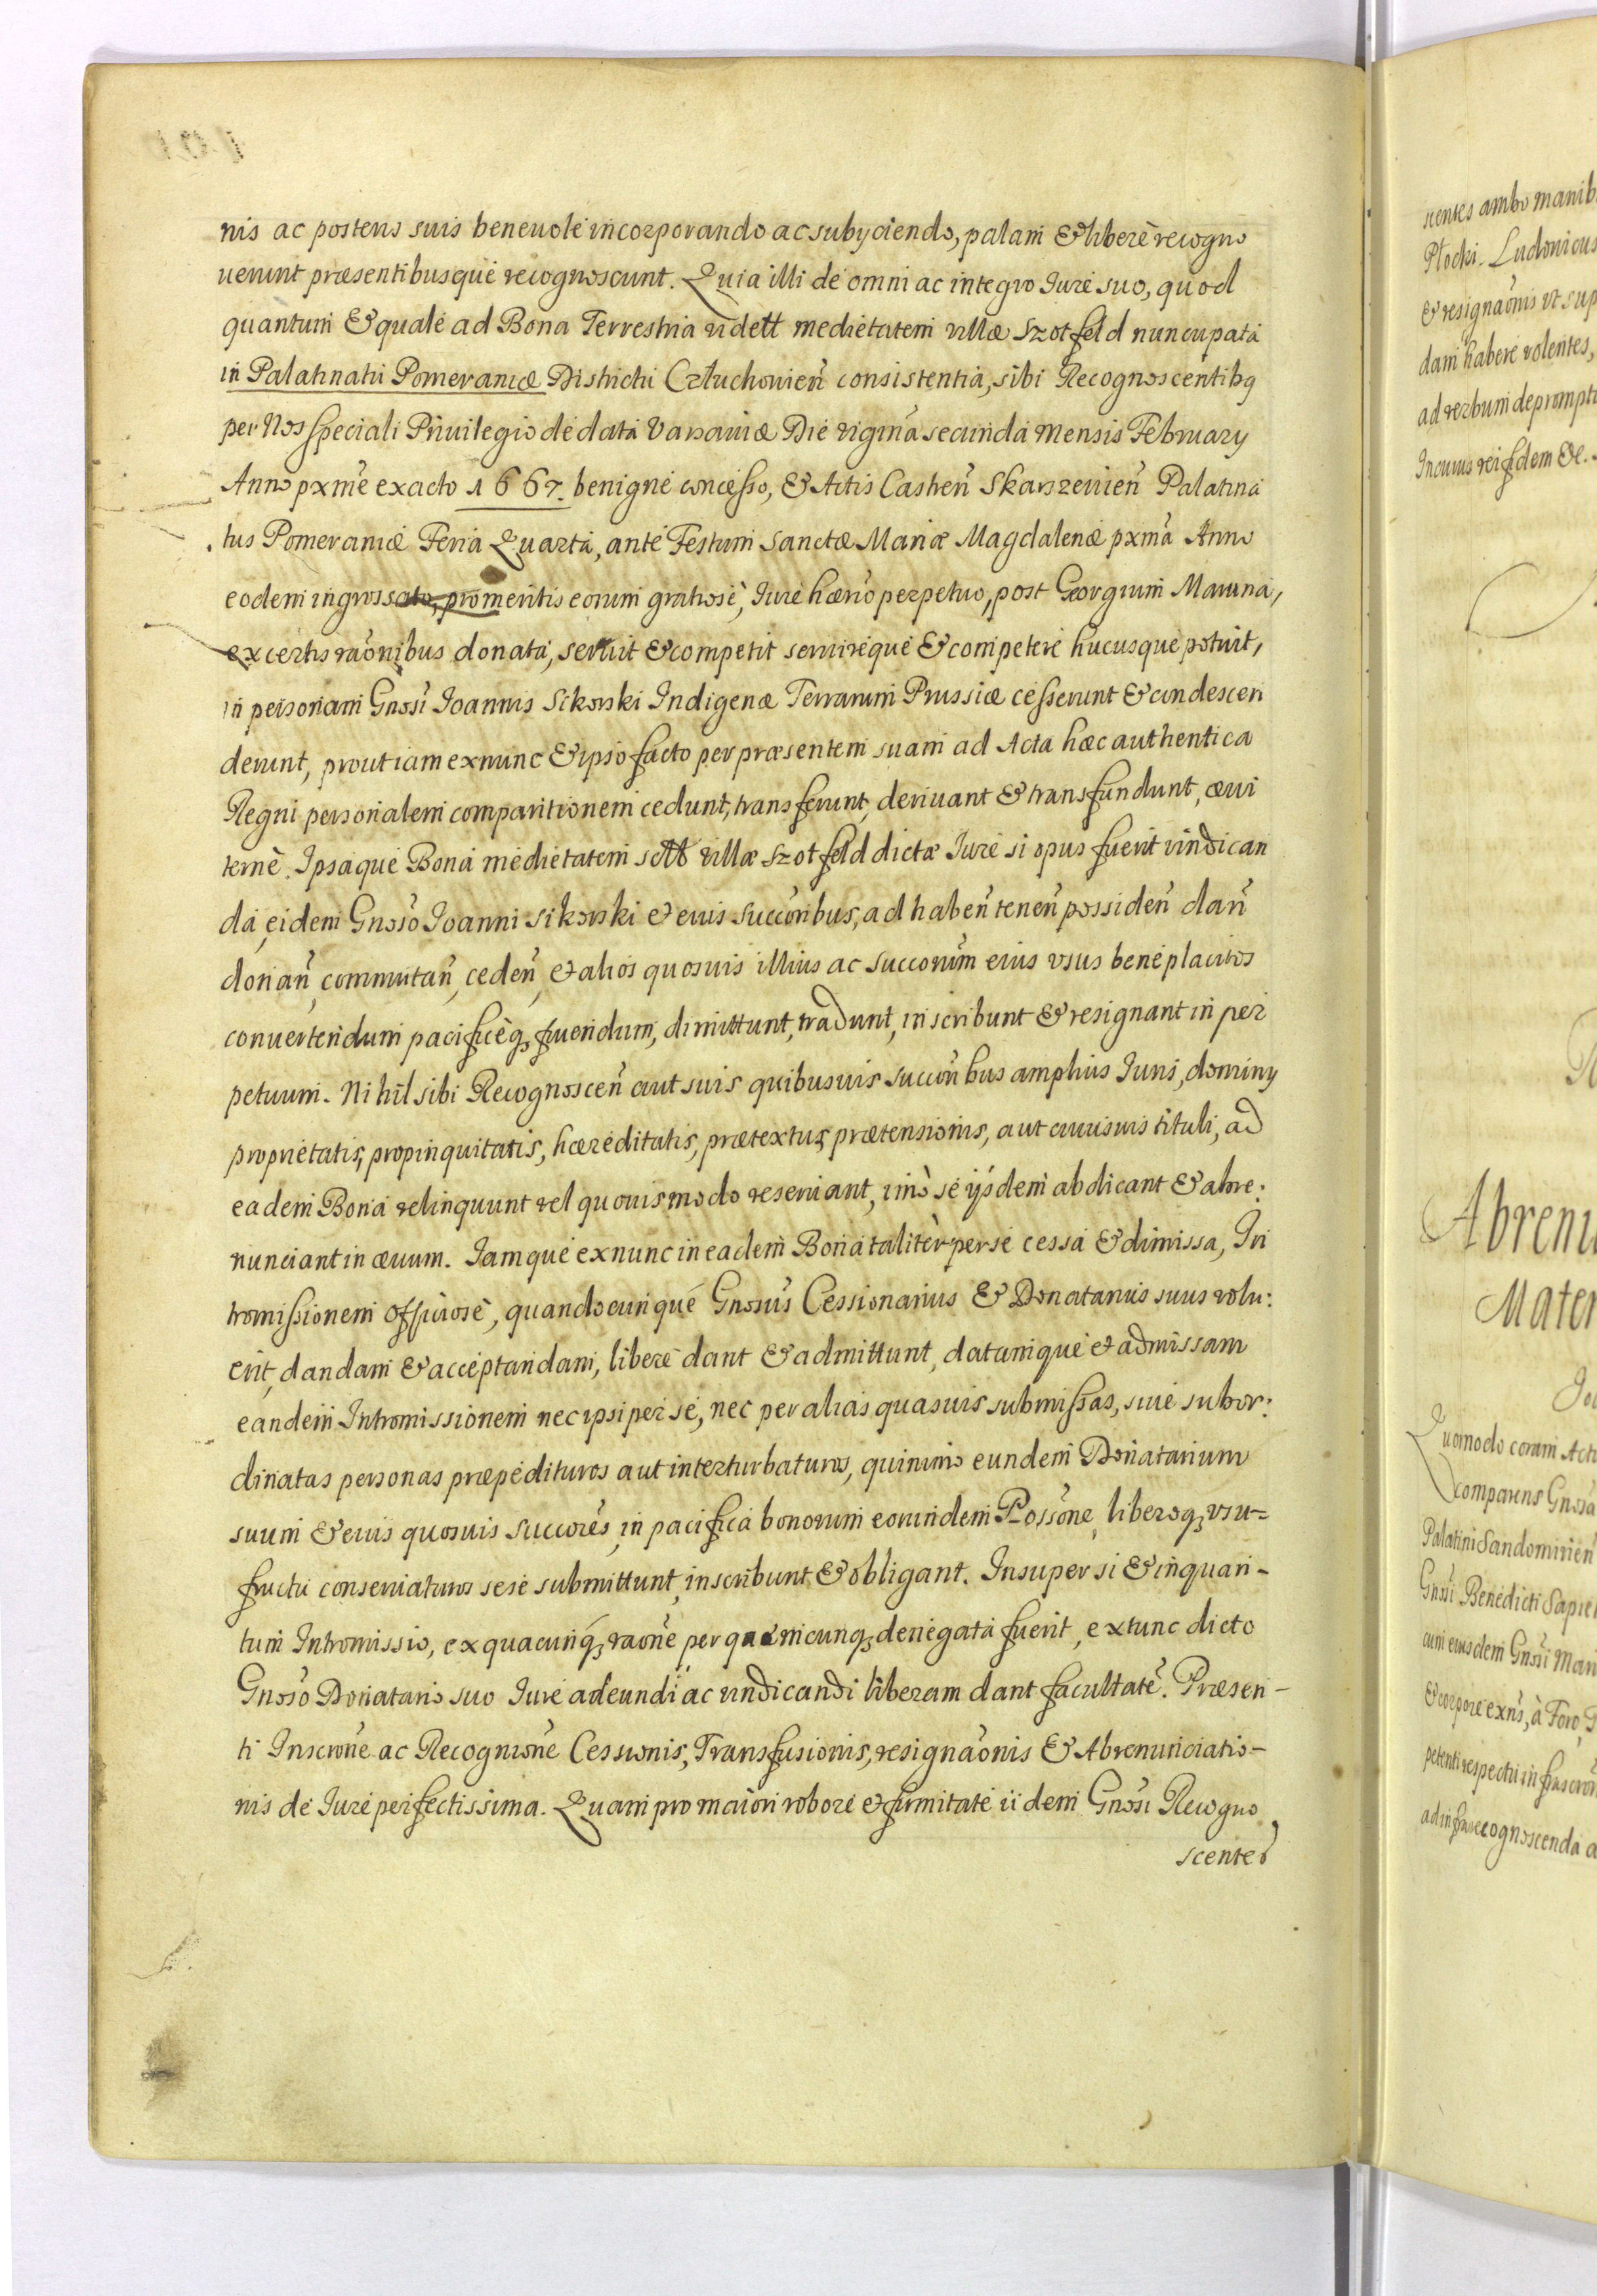 nis ac posteris suis beneuolè incorporando ac subijciendo, palam & liberè recogno
uerunt præsentibusque recognoscunt. Quia illi de omni ac integro Iure suo, quod
quantum & quale ad Bona Terrestria vidett medietatem villæ Szotfeld nuncupatâ
in Palatinatu Pomeraniæ Districtu Człuchouien̄ consistentia, sibi Recognoscentibq
per Nos speciali Priuilegio de data Varsauiæ Die vigm̄a secunda Mensis February
Anno pxme exacto 1667. benigne concesso, & Actis Castren̄ Skarszeuien̄ Palatina
tus Pomeraniæ Feria Quarta, ante Festum Sanctæ Mariæ Magdalenæ pxmā Anno
eodem ingrossato, pro meritis eorum gratiosè, Iure hæriō perpetuo, post Georgium Maruna,
ex certis raōnibus donata, seruit & competit seruireque & competere hucusque potuit,
in personam Gnosī Ioannis Sikorski Indigenæ Terrarum Prussiæ cesserunt & condescen
derunt, prout iam ex nunc & ipso facto per præsentem suam ad Acta hæc authentica
Regni personalem comparitionem cedunt, transferunt, deriuant & transfundunt, æui
ternè. Ipsaque Bona medietatem sctt villæ Szotfeld dictæ Iure si opus fuerit vindican
da, eidem Gnosō Ioanni Sikorski et eius Succōribus, ad haben̄ tenen̄ possiden̄ dan̄
donan̄, commutan̄, ceden̄, et alios quosuis illius ac Succorum̄ eius vsus beneplacitos
conuertendum pacificèq, fruendum, dimittunt, tradunt, inscribunt & resignant in per
petuum. Nihil sibi Recognoscen̄ aut suis quibusuis succōribus amplius Iuris, dominy
proprietatis, propinquitatis, hæreditatis, prætextus, prætensionis, aut cuiusuis tituli, ad
eadem Bona relinquunt vel quouismodo reseruant, imò se ijsdem abdicant & abre:
nunciant in æuum. Iamque ex nunc in eadem Bona taliter per se cessa & dimissa, In
tromissionem officiosè, quandocunque Gnosus̄ Cessionarius & Donatarius suus volu:
erit, dandam & acceptandam, liberè dant & admittunt, datamque et admissam
eandem Intromissionem nec ipsi per se, nec per alias quasuis submissas, siue subor:
dinatas personas præpedituros aut interturbaturos, quinimo eundem Donatarium
suum & eius quosuis Succores̄, in pacifica bonorum eorundem Possōne, liberoq, vsu=
fructu conseruaturos sese submittunt, inscribunt & obligant. Insuper si & inquan-
tum Intromissio, ex quacunq, raone per quemcunq, denegata fuerit, extunc dicto
Gnosō Donatario suo Iure adeundi ac vindicandi liberam dant facultatē. Præsen-
ti Inscrōne ac Recognōne Cessionis, Transfusionis, resignaōnis & Abrenunciatio-
nis de Iure perfectissima. Quam pro maiori robore et firmitate iidem Gnosī Recogno
scentes
scentes ambo manib
Płocki. Ludouicus
& resignaōnis vt sup
dam habere volentes,
ad verbum deprompt
In cuius rei fidem &c.
Abrenu
Mater
Quomodo coram Act
comparens Gnosa
Palatini Sandomirien̄
Gnosī Benedicti Sapie
cum eiusdem Gnosī Mari
& corpore exns̄, à Foro
petenti respectu infrascrōn
ad infra recognoscenda a